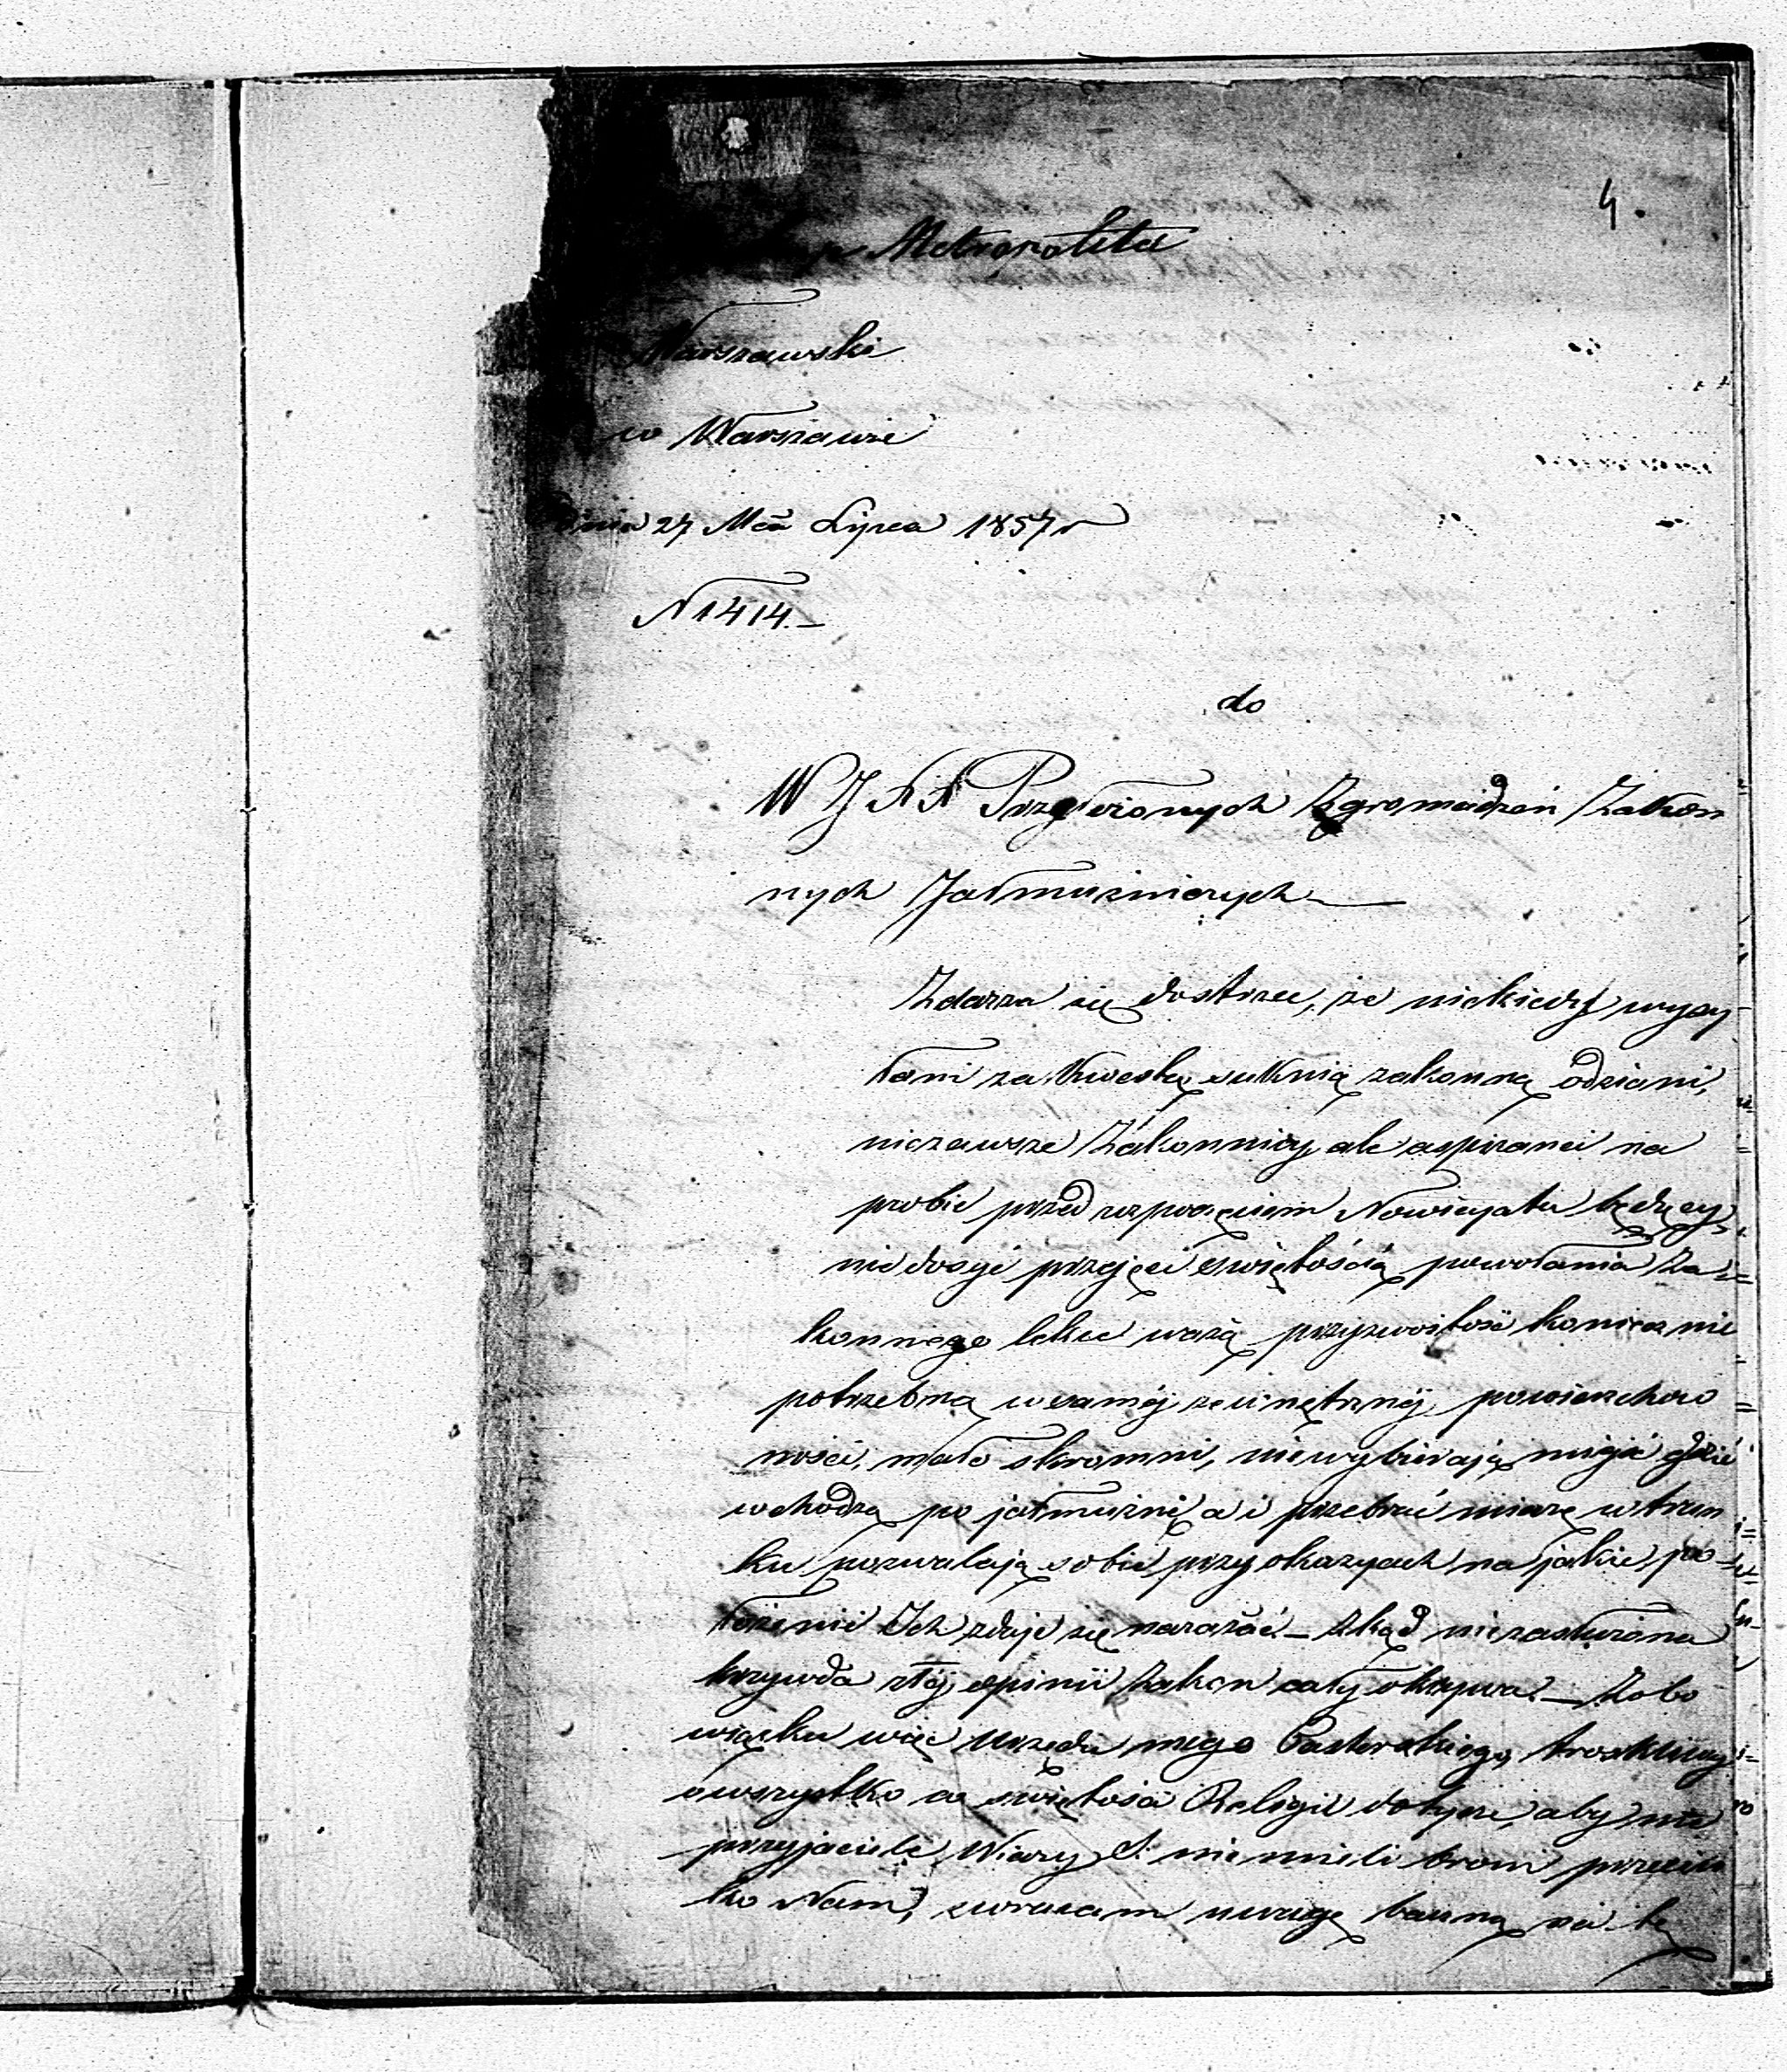 4.
Metropolita
Warszawski
w Warszawie
dnia 27 Mca Lipca 1857 r
N 1414.—
do
W J X X Przełożonych Zgromadzeń Zakon
nych Jałmużniczych —
Zdarza się dostrzec, że niekiedy wysy
łani za kwestą suknią zakonną odziani,
niezawsze Zakonnicy ale aspiranci na
probie przed rozpoczęciem Nowicyatu będący,
nie dosyć przejęci świętością powołania Za=
konnego lekce ważą przyzwoitość koniecznie
potrzebną w samej zewnętrznej powierzchow
ności, mało skromni, niewybierają miejsc gdzie
wchodzą po jałmużnię a i przebrać miarę w trun
ku pozwalają sobie przy okazyach na jakie po=
łożenie Ich zdaje się narażać. — Zkąd niezasłużona
krzywda złej opinii Zakon cały okrywa. — Zobo
wiązku więc Urzędu mego Pasterskiego, troskliwy
o wszystko co świętości Religii dotycze, aby nie
przyjaciele Wiary S. nie mieli broni przeciw
ko Nam, zwracam uwagę baczną na tę